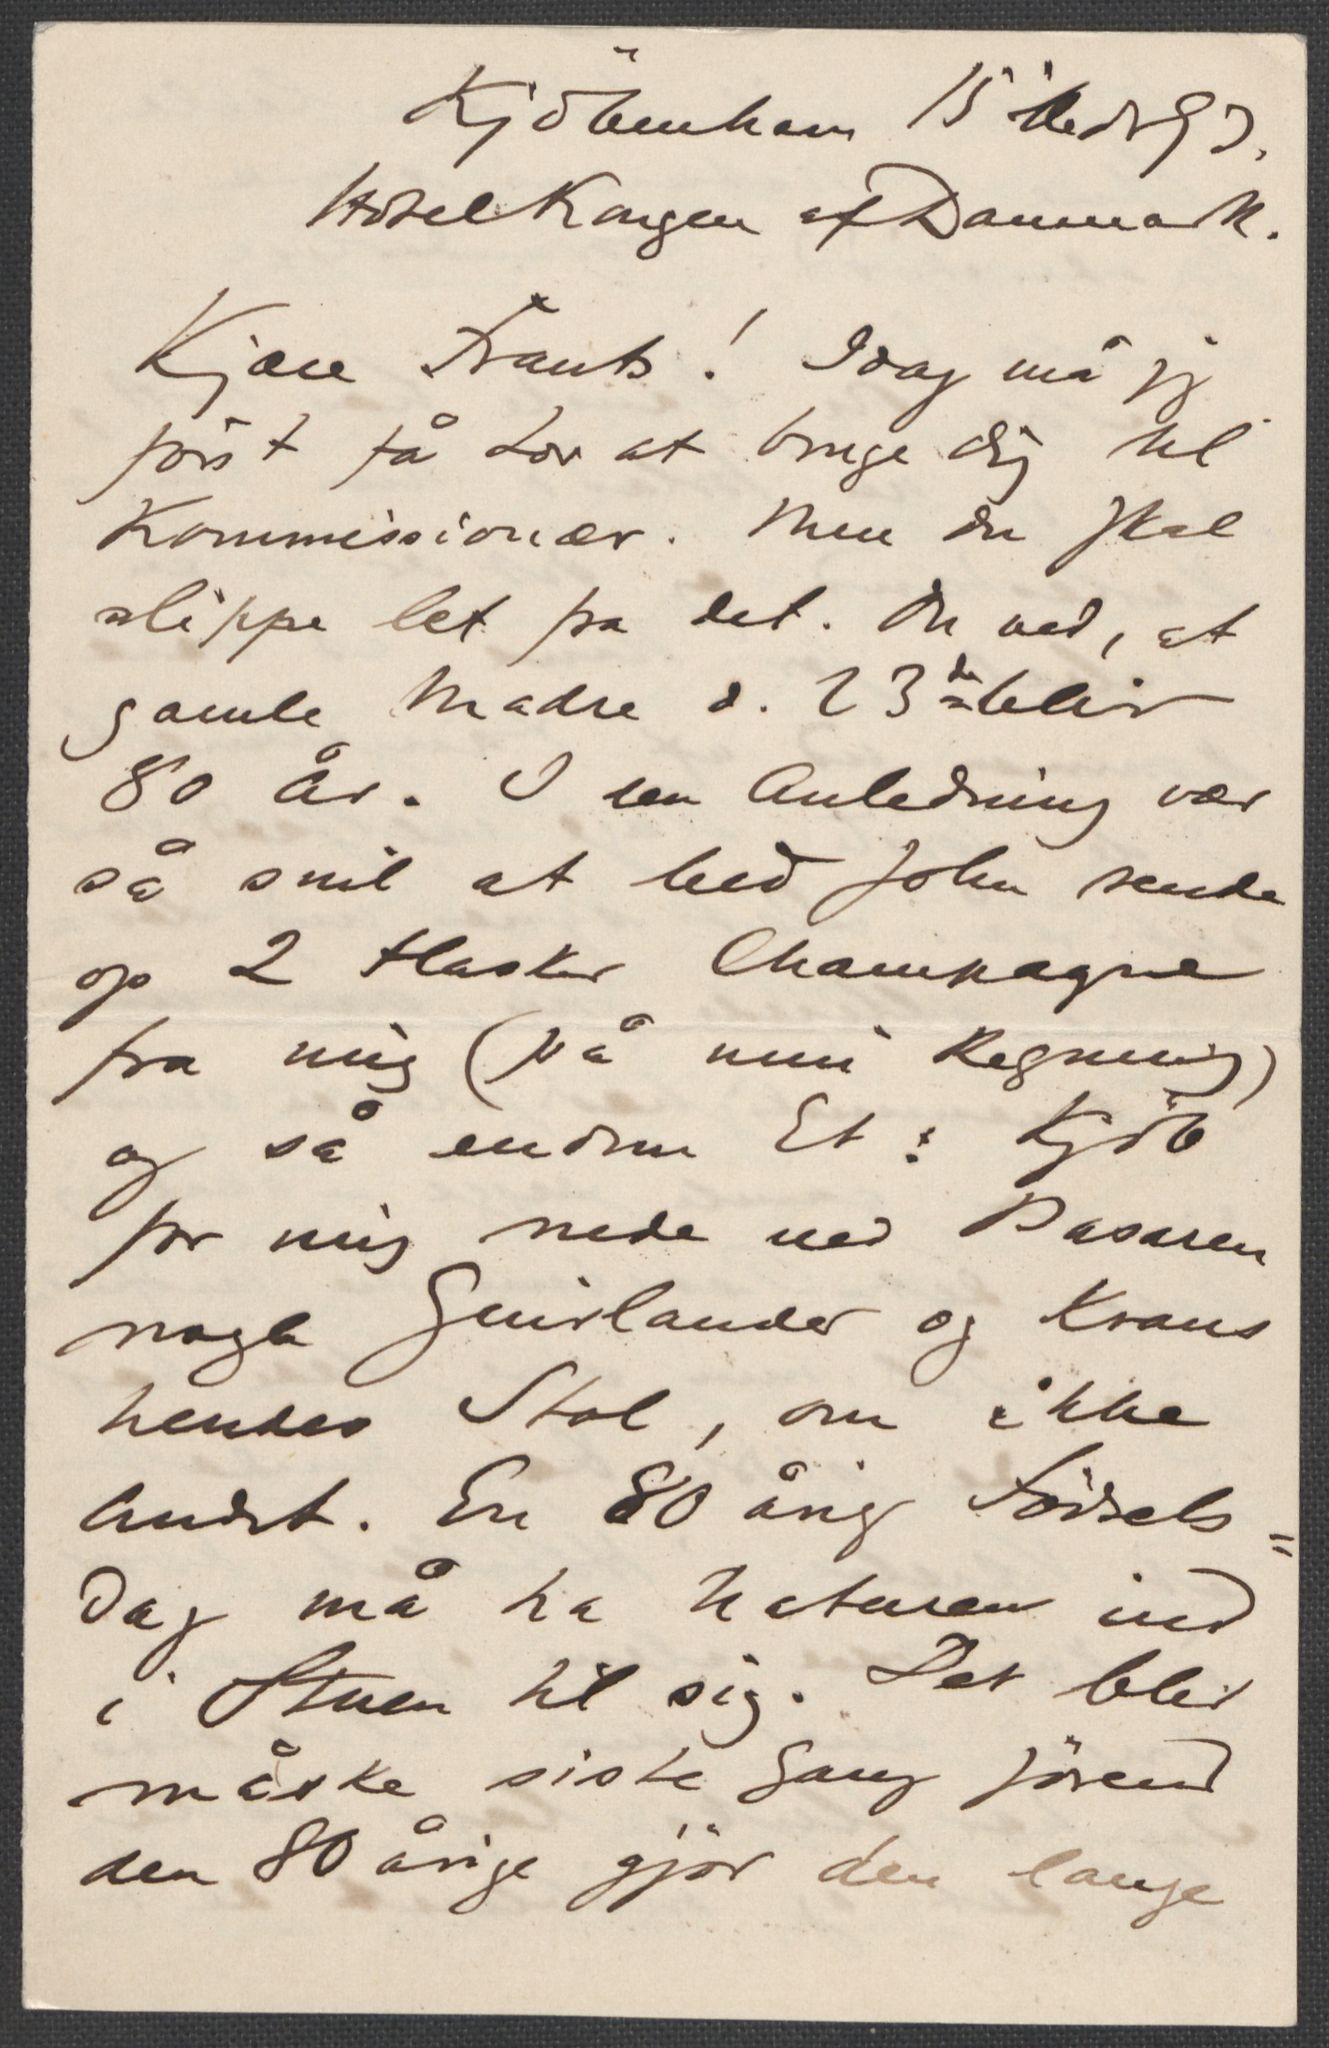 Kjöbenham 15 Dedr 93.
Hotel Kongen af Danmark.
Kjære Frants! Idag må jeg
først få Lov at bruge dig til
Kommissionær. Men du skal
slippe let fra det. Du ved, at
gamle Madre d. 23de bliver
80 År. I den Anledning vær
så snil at bed John sende
op 2 Flasker Champagne
fra mig (på min Regning)
og så endnu Et: Kjöb
for mig nede ved Basaren
nogle Guirlander og Krans
hendes Stol, om ikke
Andet. En 80 årig Födsels=
Dag må ha Naturen ind
i Stuen til sig. Det blir
måske siste Gang förend
den 80 årige gjör den lange